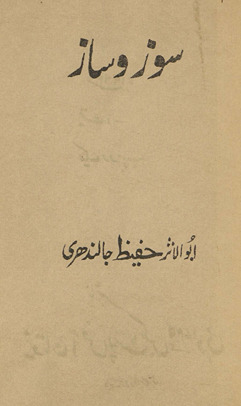 سوز و ساز
ابُو الاثر حفیظ جالندھری